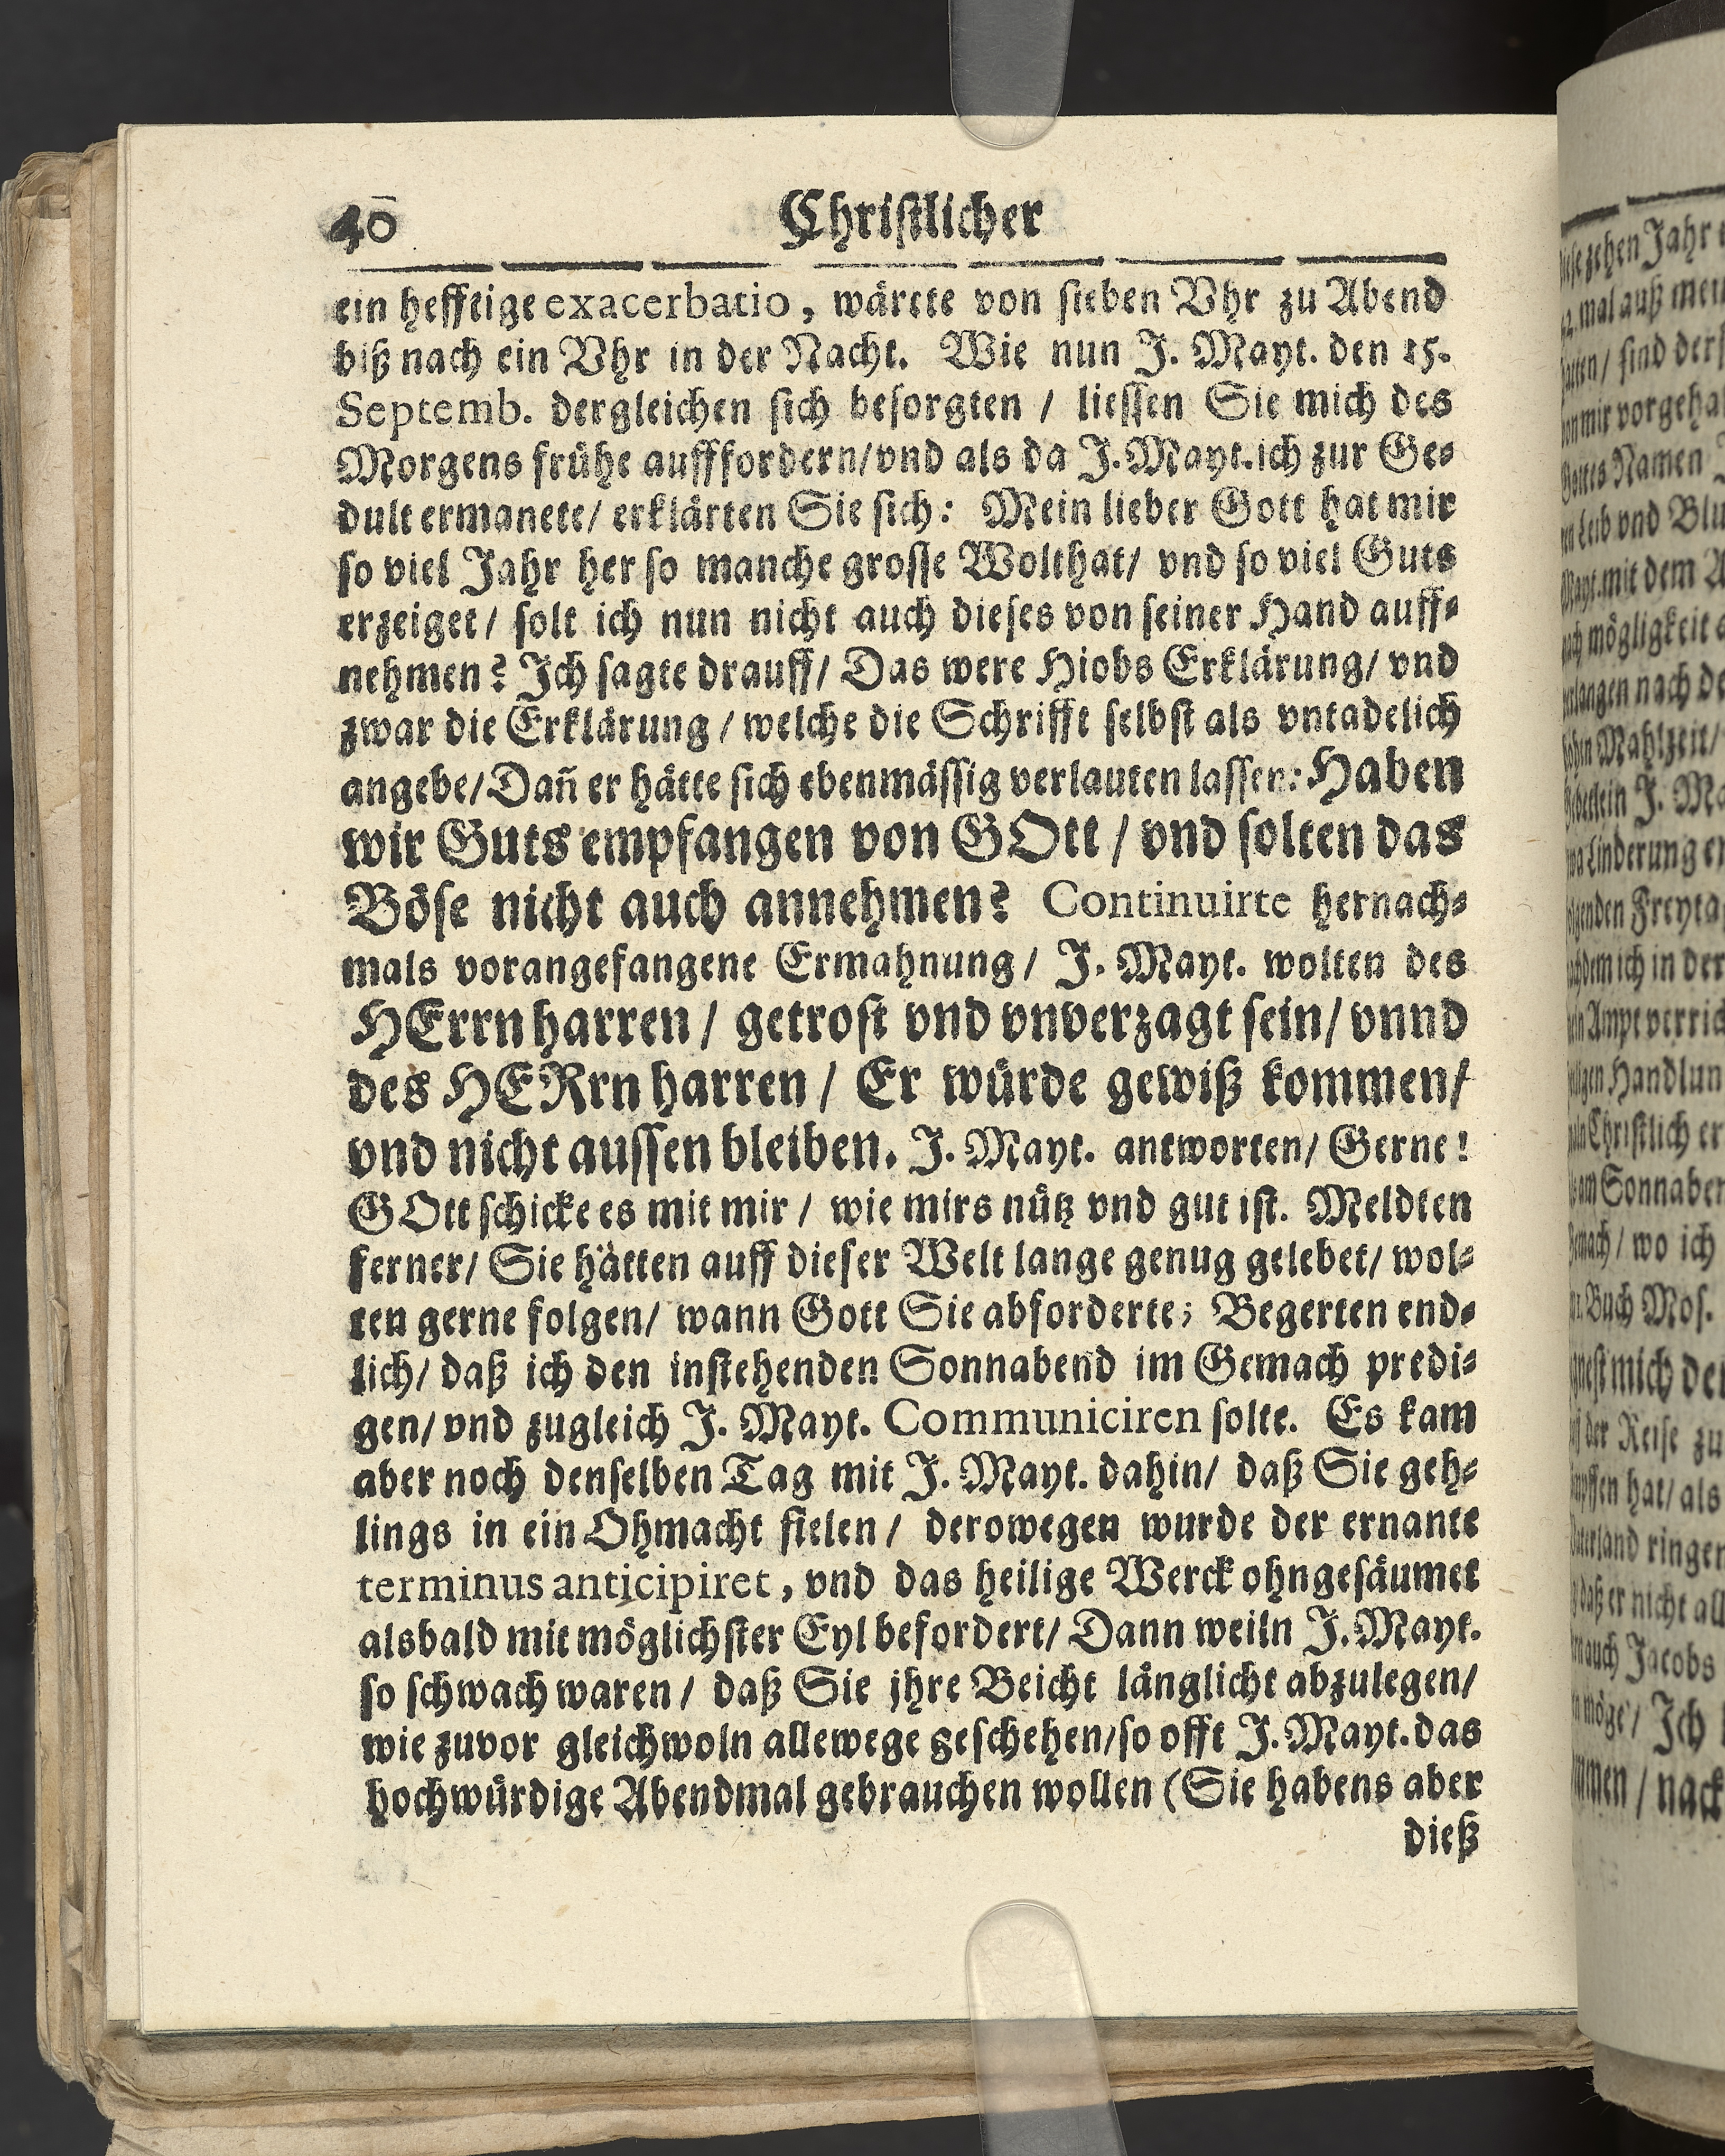 40 Christlicher
ein hefftige exacerbatio, wärete von sieben Vhr zu Abend
biß nach ein Vhr in der Nacht. Wie nun J. Mayt. den 15.
Septemb. dergleichen sich besorgten / liessen Sie mich des
Morgens frühe aufffordern/vnd als da J. Mayt. ich zur Ge-
dult ermanete/ erklärten Sie sich: Mein lieber Gott hat mir
so viel Jahr her so manche grosse Wolthat/ vnd so viel Guts
erzeiget/ solt ich nun nicht auch dieses von seiner Hand auff-
nehmen? Ich sagte drauff/ Das were Hiobs Erklärung/ vnd
zwar die Erklärung / welche die Schrifft selbst als vntadelich
angebe/Dañ er hätte sich ebenmässig verlauten lassen: Haben
wir Guts empfangen von GOtt / vnd solten das
Böse nicht auch annehmen? Continuirte hernach-
mals vorangefangene Ermahnung / J. Mayt. wolten des
HErrn harren / getrost vnd vnverzagt sein/ vnnd
des HERrn harren / Er würde gewiß kommen/
vnd nicht aussen bleiben. J. Mayt. antworten/ Gerne!
GOtt schicke es mit mir / wie mirs nütz vnd gut ist. Meldten
ferner/ Sie hätten auff dieser Welt lange genug gelebet/ wol-
ten gerne folgen/ wann Gott Sie abforderte; Begerten end-
lich/ daß ich den instehenden Sonnabend im Gemach predi-
gen/ vnd zugleich J. Mayt. Communiciren solte. Es kam
aber noch denselben Tag mit J. Mayt. dahin/ daß Sie geh-
lings in ein Ohmacht fielen / derowegen wurde der ernante
terminus anticipiret, vnd das heilige Werck ohngesäumet
alsbald mit möglichster Eyl befordert/ Dann weiln J. Mayt.
so schwach waren / daß Sie jhre Beicht länglicht abzulegen/
wie zuvor gleichwoln allewege geschehen/so offt J. Mayt. das
hochwürdige Abendmal gebrauchen wollen (Sie habens aber
dieß
zehen Jahr
mal auß
sind
mir vorgeha
Gottes Namen
Leib vnd Blu
Mayt. mit dem
mögligkeit
nach
Mahlzeit/
J. Ma
Linderung
Freyta
ich in der
Ampt verric
Handlun
Christlich er
am Sonnaben
/ wo ich
Buch Mos.
mich
der Reise zu
hat/ als
ringen
daß er nicht all
auch Jacobs
möge / Ich
/ nack